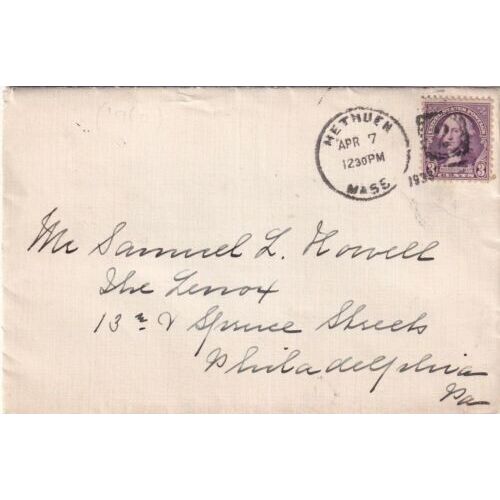 METHUEN
APR 7
1230PM
MASS.
3 3
Mr Samuel L. Howell
The Lenox
13th & Spruce Streets
Philadelphia
Pa